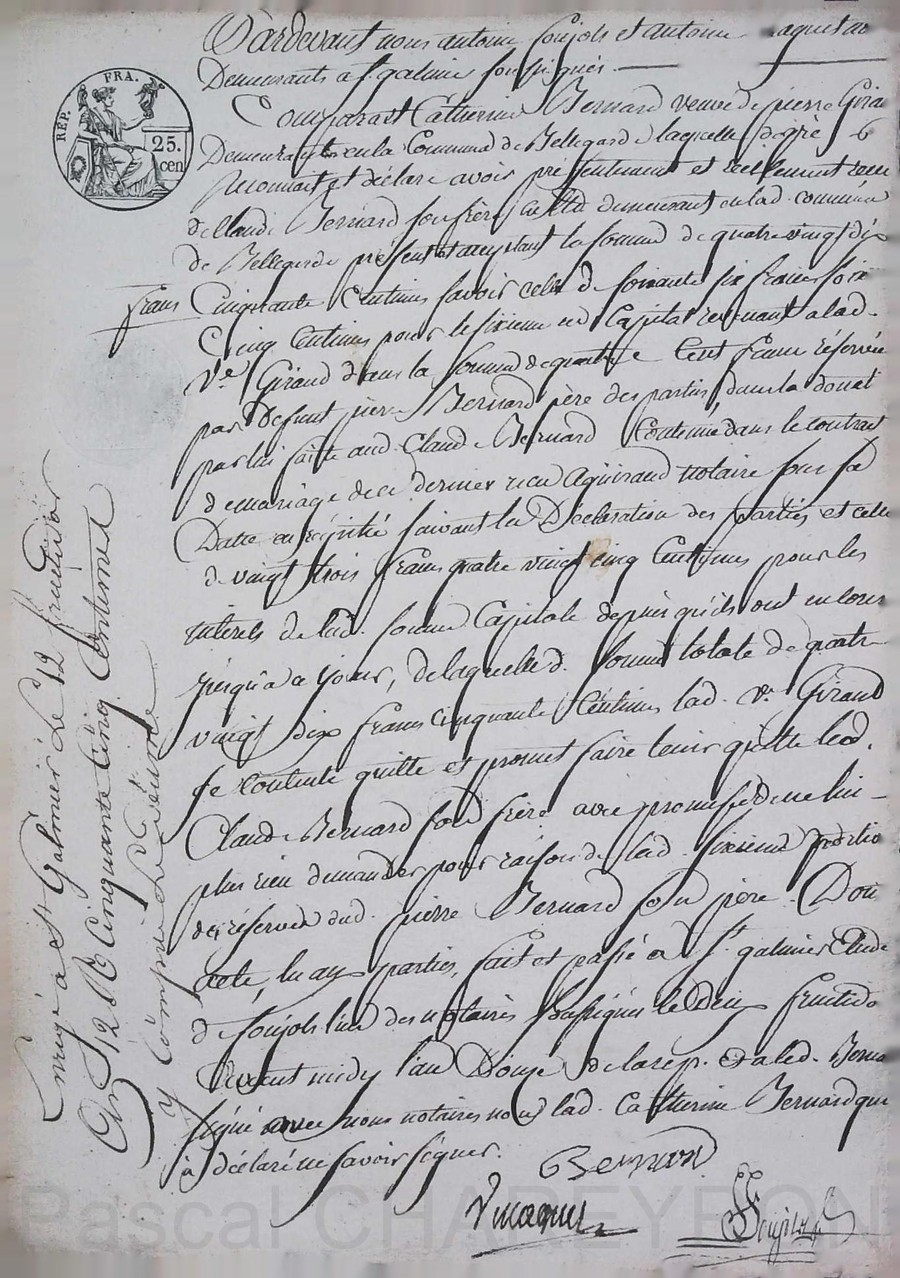 RÉP. FRA.
25.
cen
Pardevant nous antoine Soujols et antoine
Demeurants a St. galmier soussignés
Comparait Catherine Bernard veuve de pierre Girau
Demeurante en la Commune de Bellegarde laquelle de gré
Reconnait et déclare avoir présentement et réellement receu
de Claude Bernard son frère demeurant en lad. commune
de Bellegarde présent et acceptant la somme de quatre vingt dix
francs Cinquante Centimes savoir celle de soixante six francs soix
Cinq Centimes pour le sixieme en Capital revenant a lad.
Ve. Giraud dans la somme de quatre Cent francs réservée
par Defunt pierre Bernard père des parties dans la donat
par lui faite aud. Claude Bernard Contenue dans le contrat
de mariage de ce dernier receu notaire sous sa
Datte enregistré suivant la Déclaration des parties et celle
de vingt trois francs quatre vingt cinq Centimes pour les
interets de lad. somme Capitale depuis qu'ils ont eu cours
jusqu'a a ce jour, de laquelle d. somme totale de quatre
vingt dix francs cinquante Centimes lad. Ve. Giraud
se contente quitte et promet faire tenir quitte led.
Claude Bernard son frère avec promesse de ne lui
plus rien demander pour raison de lad. sixieme portio
de réserve dud. pierre Bernard son père. Dont
acte, lu aux parties, fait et passé a St. galmier Etude
de Soujols l'un des notaires soussignés le Dix fructido
avant midy l'an Douze de la rep. et a led. Berna
signé avec nous notaires non lad. Catherine Bernard qui
a déclaré ne savoir signer.
Bernard
Soujols
Enregé a St Galmier le 12 fructidor
an 12 Cinquante Cinq Centimes
y compris
Pascal CHAREYRON